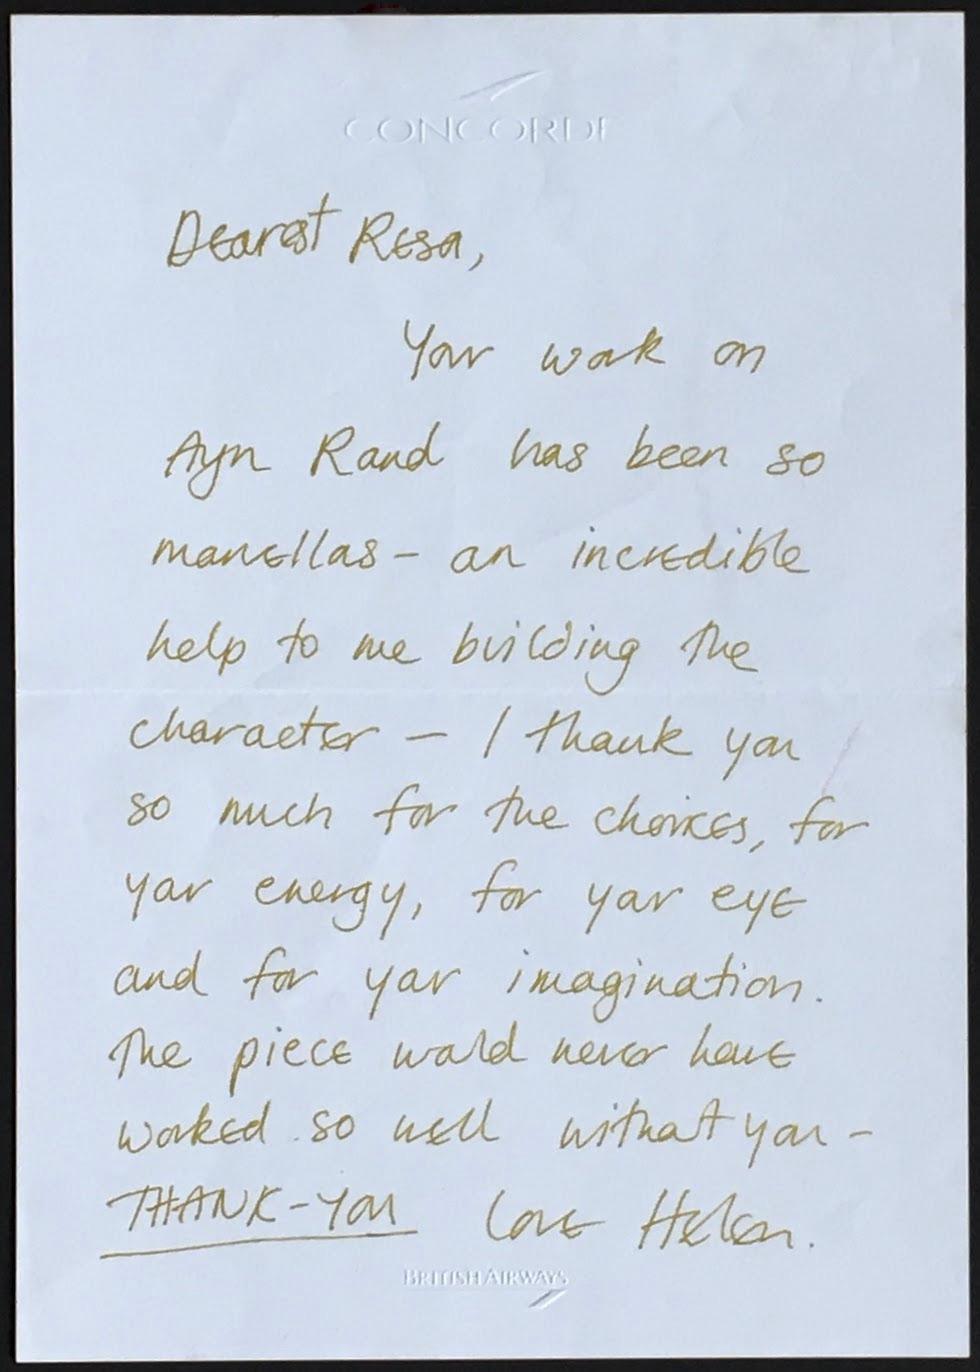 CONCORDE
Dearest Resa,
Your work on
Ayn Rand has been so
marvellous – an incredible
help to me building the
character – I thank you
so much for the choices, for
your energy, for your eye
and for your imagination.
The piece would never have
worked so well without you –
THANK-YOU love Helen.
BRITISH AIRWAYS